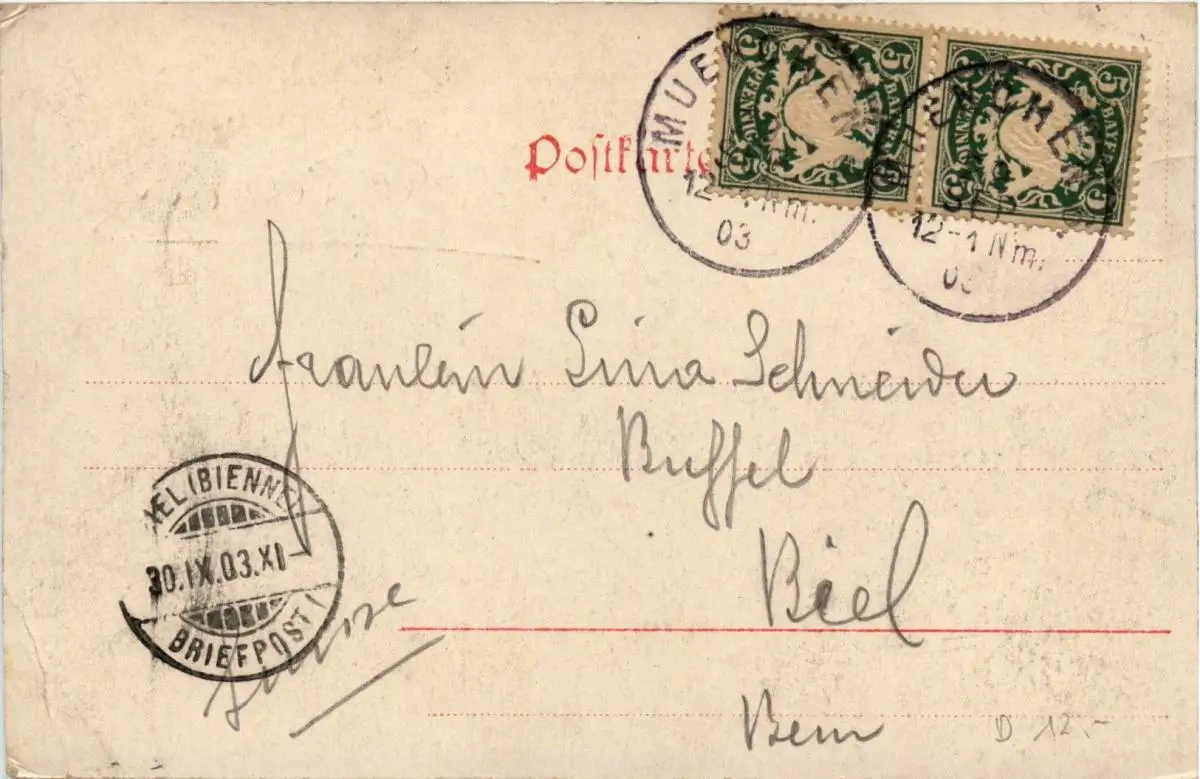 Postkarte
MUENCHEN
12-1 Nm.
03
MUENCHEN
SEP
12-1 Nm.
03
5 5
BAYERN
PFENNIG
5 5
BAYERN
PFENNIG
Fräulein Lina Schneider
Buffet
Biel
Schweiz
Bern
D 12.-
BIEL (BIENNE)
30.IX.03.XI
BRIEFPOST